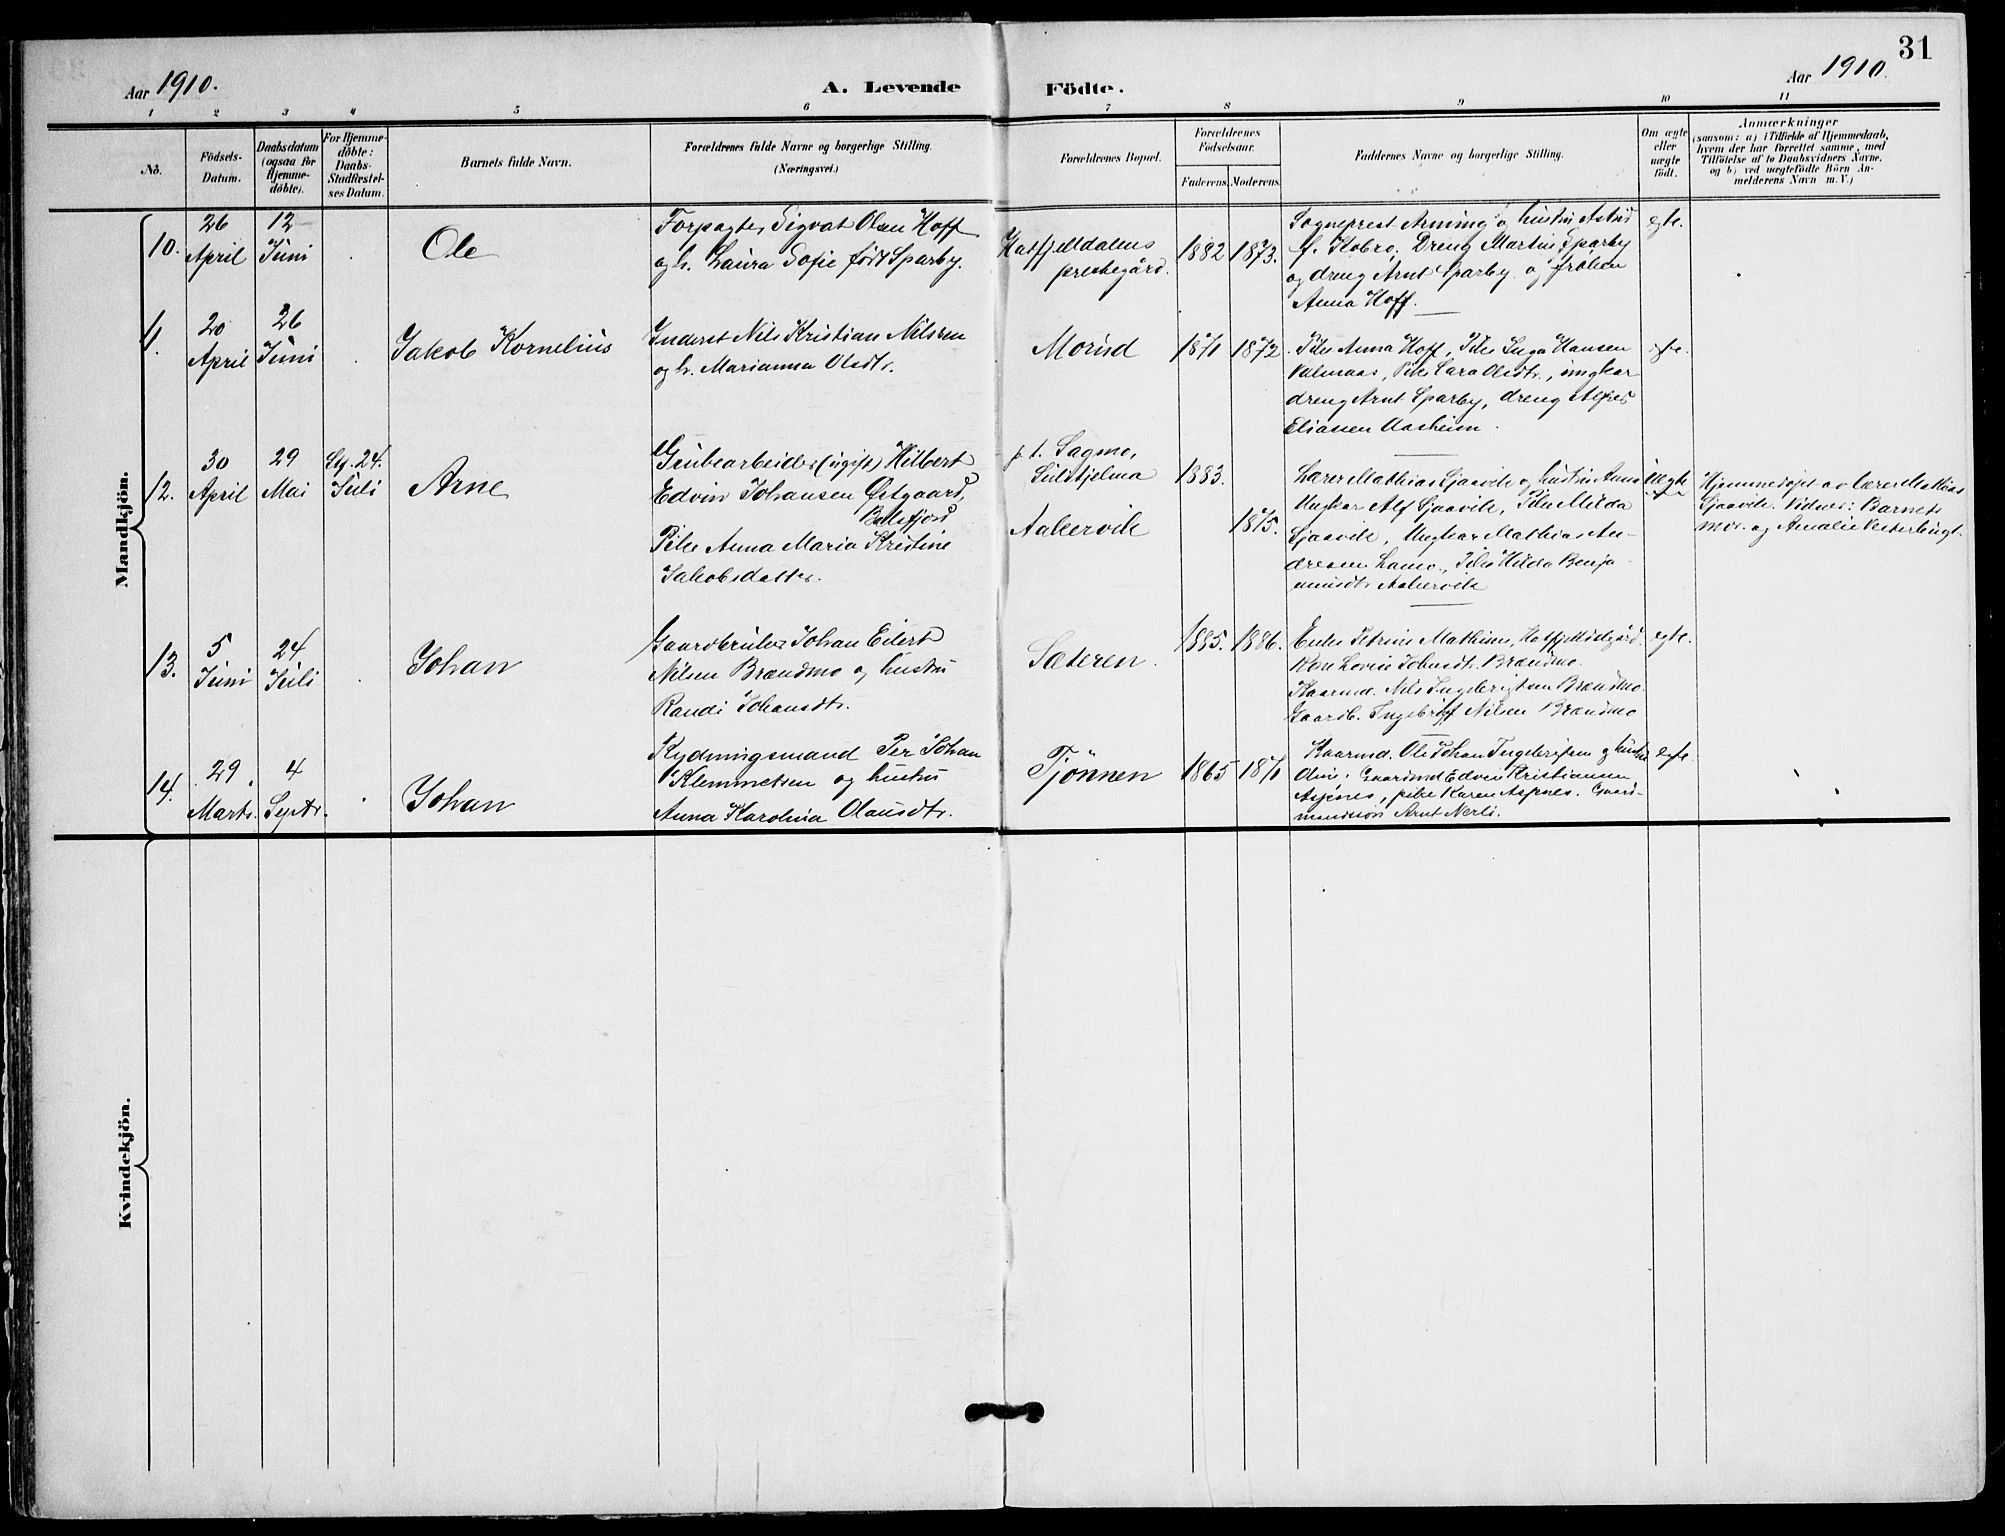 31
Aar 1910.
A. Levende
Födte.
Aar 1910.
1 2 3 4 5 6 7 8 9 10 11
No.
Födsels-
Datum.
Daabsdatum
(ogsaa for
Hjemme-
döbte).
For Hjemme-
döbte:
Daabs-
Stadfæstel-
ses Datum.
Barnets fulde Navn.
Forældrenes fulde Navne og borgerlige Stilling.
(Næringsvei.)
Forældrenes Bopæl.
Forældrenes
Födselsaar.
Faderens. Moderens.
Faddernes Navne og borgerlige Stilling.
Om ægte
eller
uægte
födt.
Anmærkninger
(saasom: a) i Tilfælde af Hjemmedaab,
hvem der har forrettet samme, med
Tilföielse af to Daabsvidners Navne,
og b) ved uægtefödte Börn An-
melderens Navn m. V.)
Mandkjön.
10.
26
April
12
Juni
Ole
Forpagter Sigvat Olsen Hoff
og h. Laura Sofie født Sparby.
Hatfjelldalens
prestegård.
1882
1873.
Sogneprest Arming og hustru Astrid
f. Kobro, Dreng Martin Sparby
og dreng Arnt Sparby og frøken
Anna Hoff.
egte.
11.
20
April
26
Juni
Jakob Kornelius
Inderst Nils Kristian Nilsen
og h. Marianna Olsdtr.
Morud
1871
1872
Pike Anna Hoff, Pike Inga Hansen
, Pike Sara Olsdtr., ungkar
dreng Arnt Sparby, dreng Alfred
Eliassen Aasheim.
egte.
12.
30
April
29
Mai
Stf. 24.
Juli
Arne
Grubearbeider (ugift) Hilbert
Edvin Johansen Østgaard,
Balsfjord
Pike Anna Maria Kristine
Jakobsdatter.
p.t. Sagmo,
Sulitjelma
Aakervik
1883.
1875.
Lærer Mathias Sjaavik og hustru Anna
Ungkar Alf Sjaavik, Pike Milda
Sjaavik, Ungkar Mathias An-
dresen Lamo, Pike Hilda Benja-
minsdtr. Aakervik
Uegte
Hjemmedøpt av lærer Mathias
Sjaavik. Vidner: Barnets
mor og Amalie Vesterbugt.
13.
5
Juni
24
Juli
Johan
Gaardbruker Johan Eilert
Nilsen Brændmo og hustru
Randi Johansdtr.
Sæteren.
1885.
1886.
Enke Katrine Mathisen, Hatfjelldalgård.
Kone Lovise Johnsdtr. Brændmo.
Kaarmd. Nils Ingebrigtsen Brændmo.
Gaardb. Ingebrigt Nilsen Brændmo
egte.
14.
29
Marts.
4
Septr.
Johan
Rydningsmand Per Johan
Klemmetsen og hustru
Anna Karolina Olausdtr.
Tjønnen
1865
1871
Kaarmd. Ole Johan Ingebrigtsen og hustru
Oline. Gaardmd Edvin Kristiansen
Aspnes, pike Karen Aspnes. Gaard-
mandssøn Arnt Nerli.
egte.
Kvindekjön.